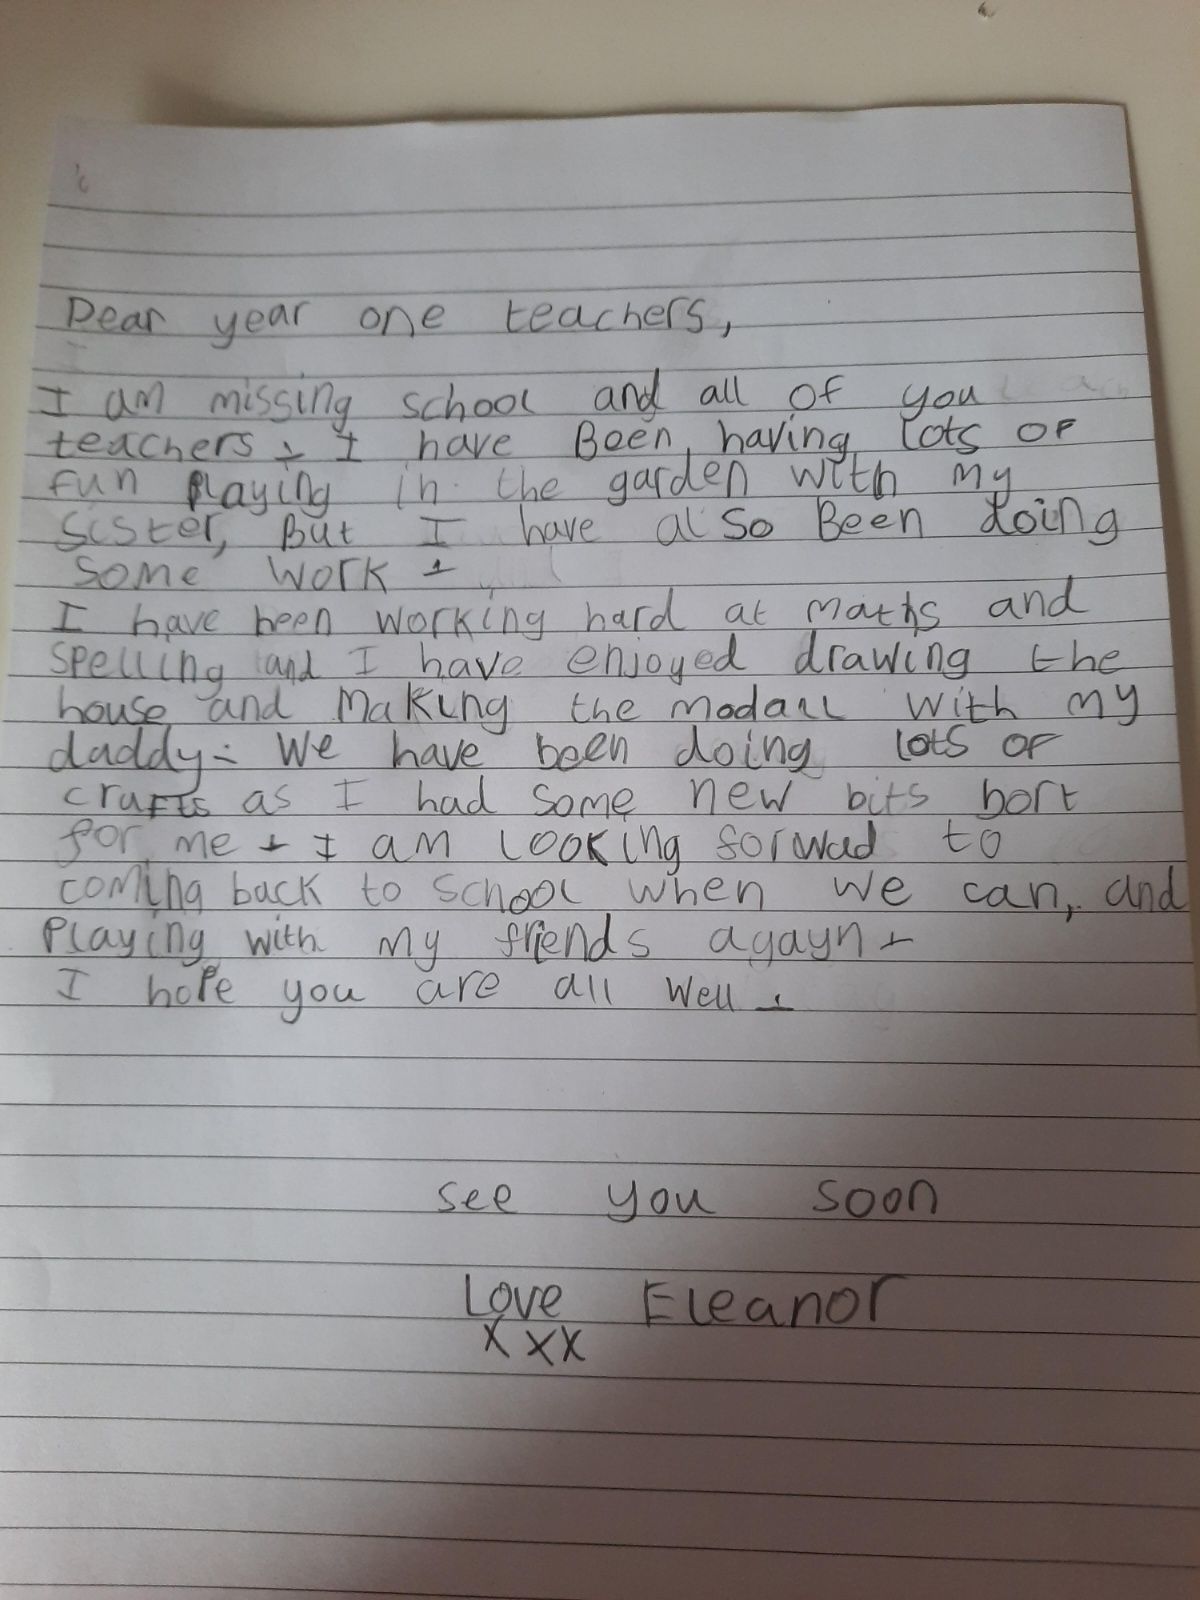 Dear year one teachers,
I am missing school and all of you
teachers. I have Been having lots of
fun playing in the garden with my
sister, But I have also Been doing
some work.
I have been working hard at maths and
spelling and I have enjoyed drawing the
house and making the modall with my
daddy. We have been doing lots of
crafts as I had some new bits bort
for me. I am looking forwad to
coming back to school when we can, and
Playing with my friends agayn.
I hope you are all well.
see you soon
Love Eleanor
x xx